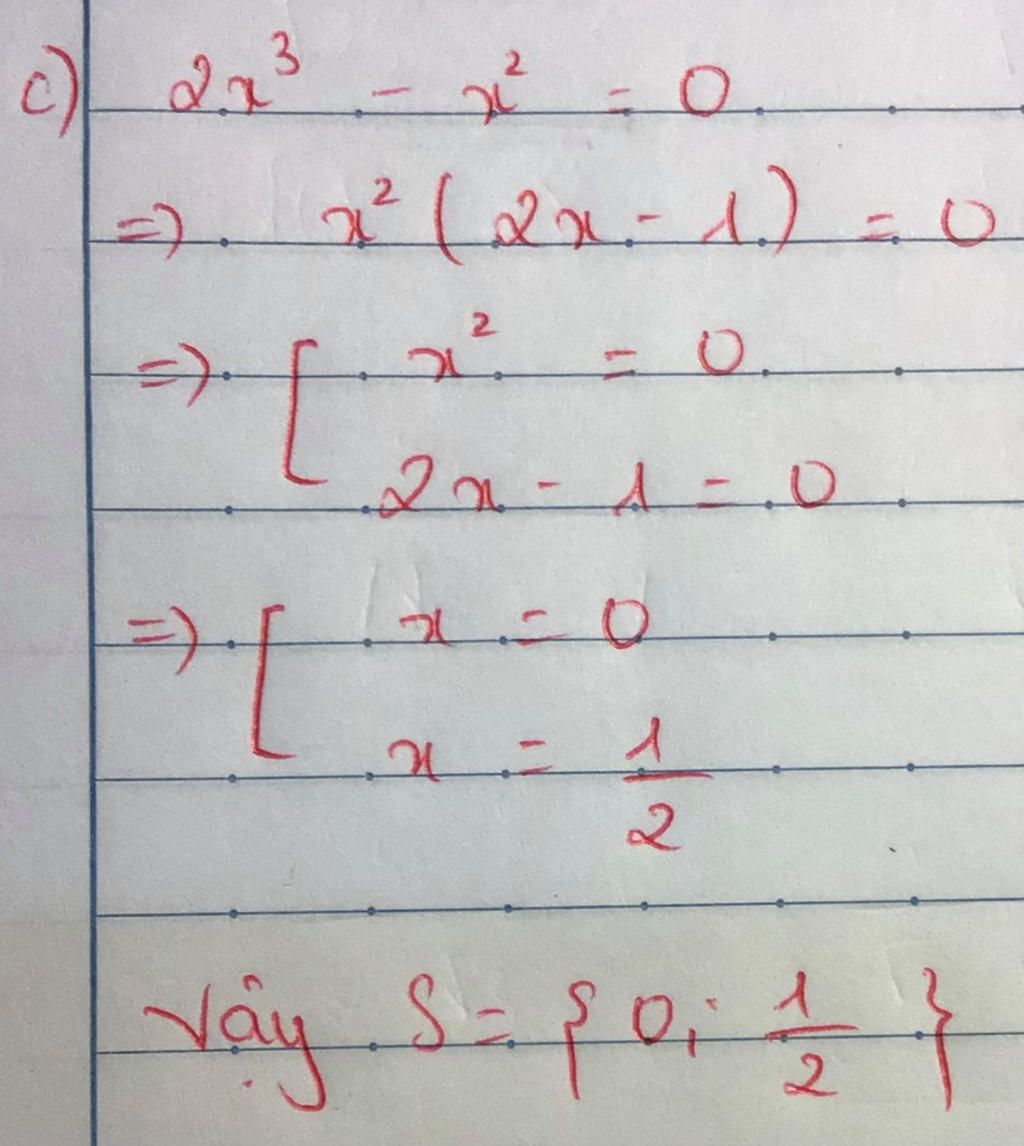 c) 2x³ - x² = 0
=> x² ( 2x - 1 ) = 0
=> [ x² = 0
2x - 1 = 0
=> [ x = 0
x = 1/2
Vậy S = { 0 ; 1/2 }